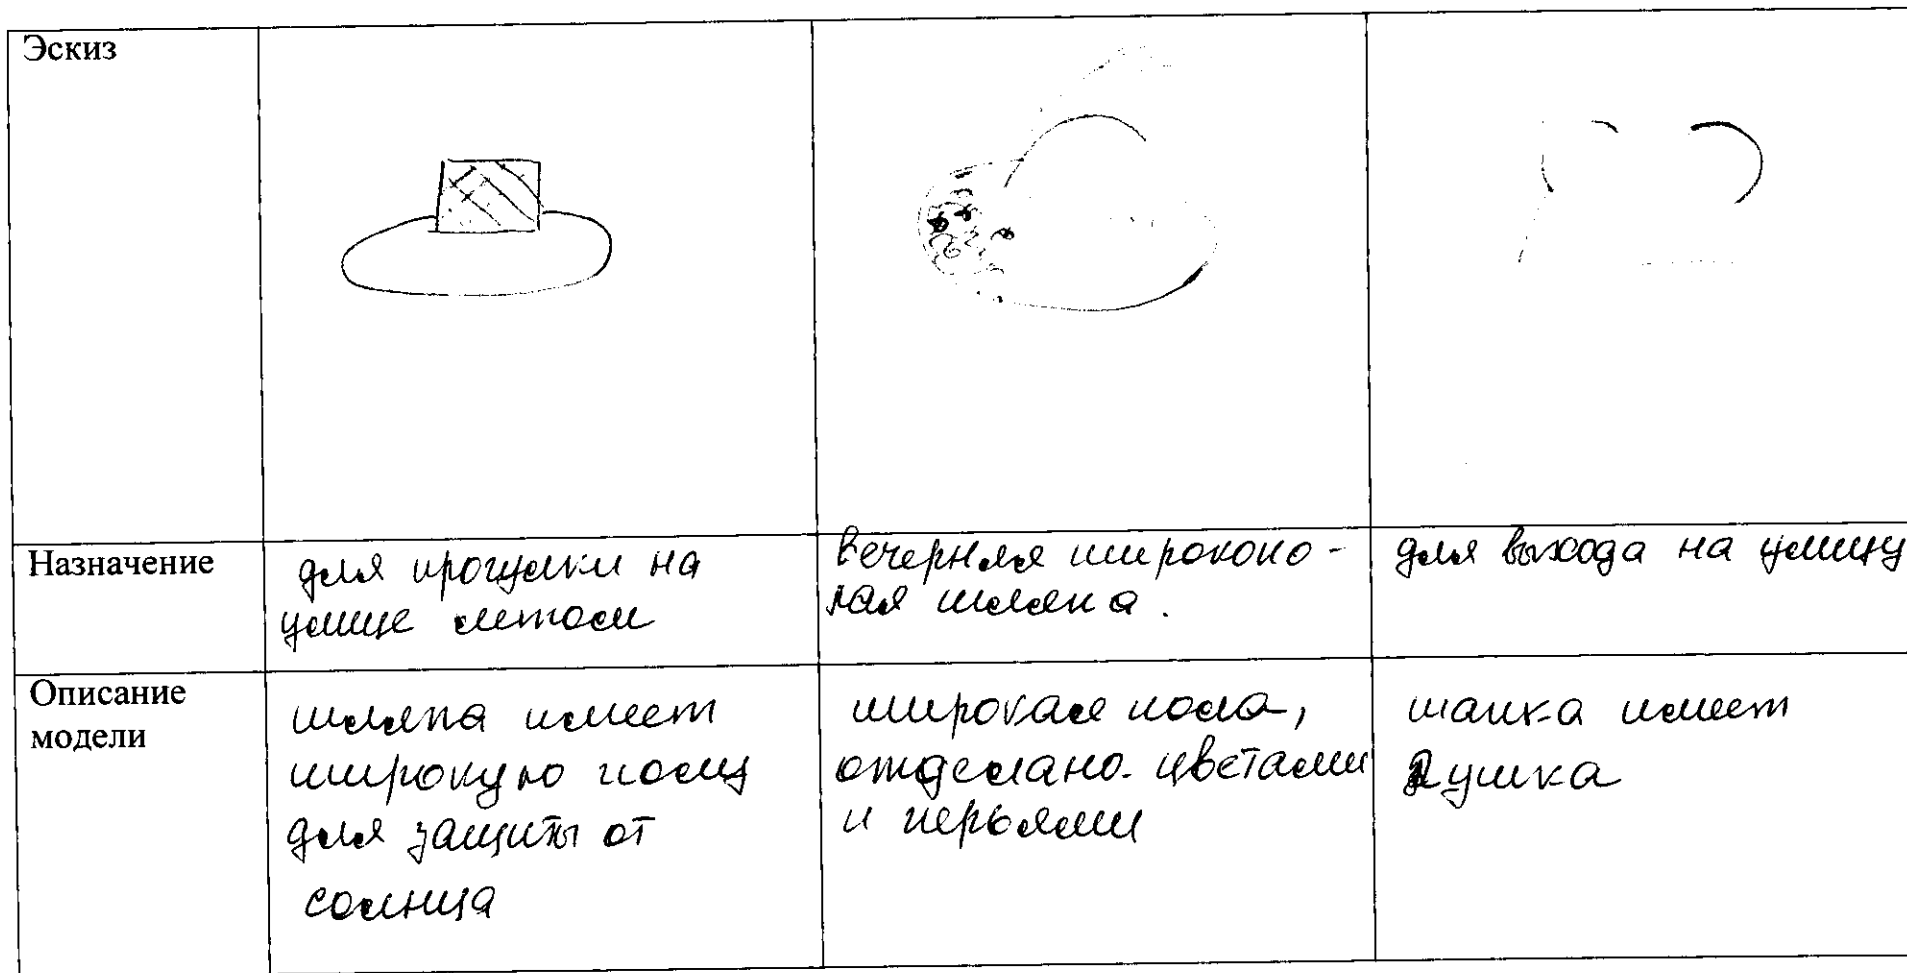 Эскиз
Назначение
для прогулки на
улице летом
вечерняя широкопо-
лая шляпа.
для выхода на улицу
Описание
модели
шляпа имеет
широкую полу
для защиты от
солнца
широкая пола,
отделано цветами
и перьями
шапка имеет
ушка